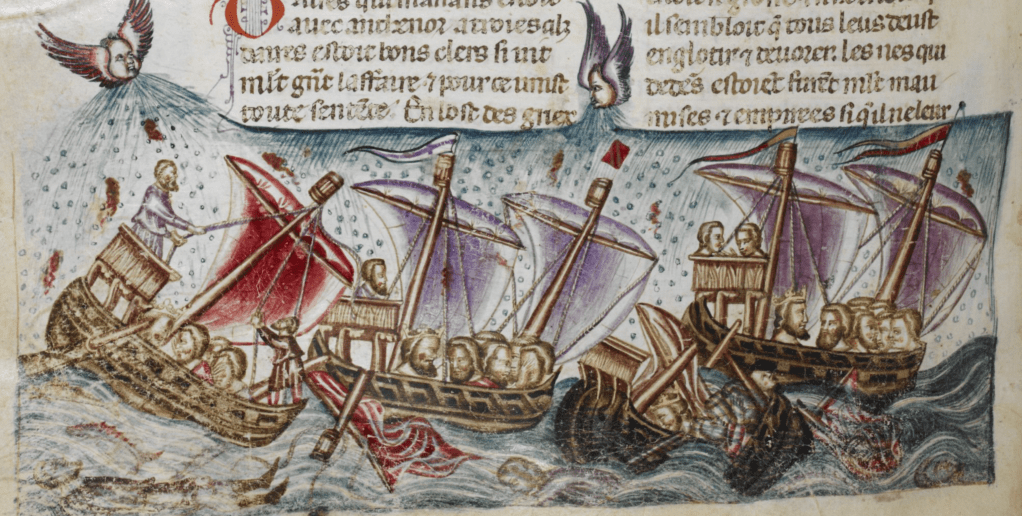 auec anthenor
daires estoit bons clers si uit
ml't gñt laffaire ⁊ pour ce mist
toute En lost des griex
il sembloit q̃ tous leus deust
englotir ⁊ deuorer. les nes qui
dedẽs estoiẽt furẽt ml't mau
mises ⁊ empirees si qil ne leur